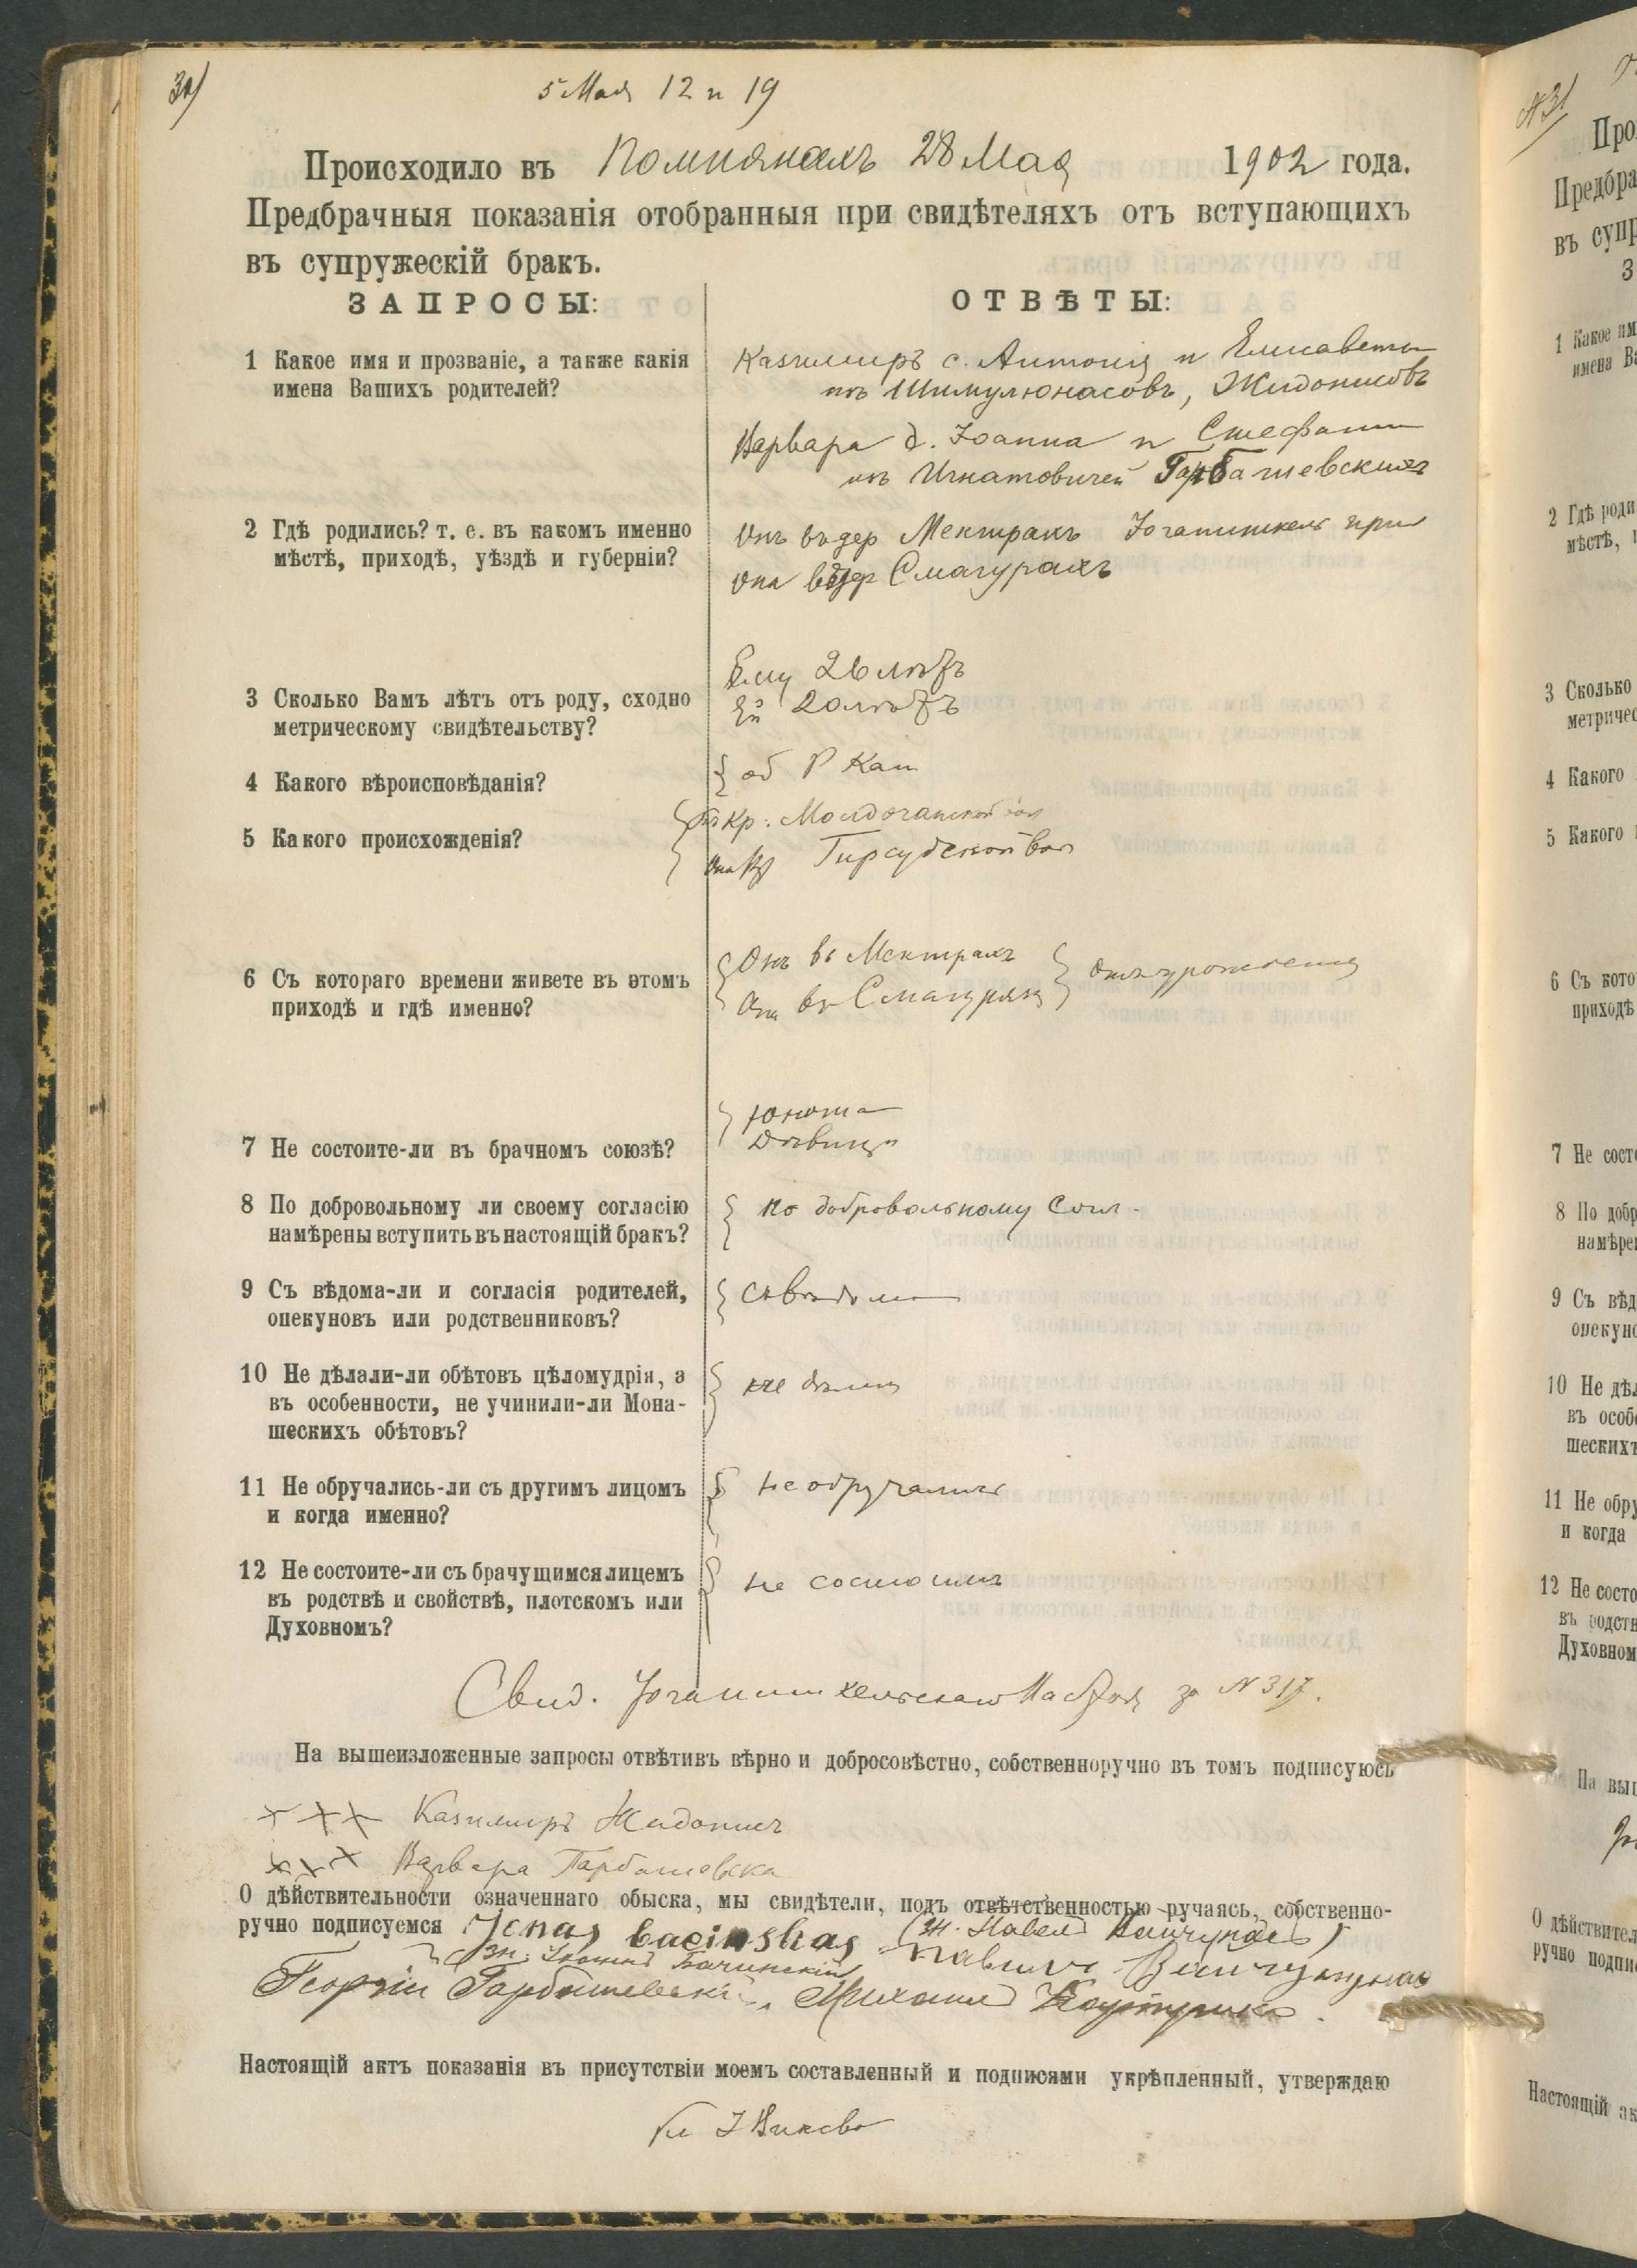 30)
5 Мая 12 и 19
Происходило въ Помпянахъ 28 Мая 1902 года.
Предбрачныя показанія отобранныя при свидѣтеляхъ отъ вступающихъ
въ супружескій бракъ.
ЗАПРОСЫ: ОТВѢТЫ:
1 Какое имя и прозваніе, а также какія
имена Вашихъ родителей?
Казимиръ с. Антонія и Елисаветы
изъ Шимулюнасовъ, Жидонисовъ
Варвара д. Іоанна и Стефаніи
изъ Игнатовичей Гарбашевскихъ
2 Гдѣ родились? т. е. въ какомъ именно
мѣстѣ, приходѣ, уѣздѣ и губерніи?
Онъ въ дер Мекшрахъ Іоганишкель прих
Она въ дер Смагурахъ
3 Сколько Вамъ лѣтъ отъ роду, сходно
метрическому свидѣтельству?
Ему 26 лѣтъ
Ей 20 лѣтъ
4 Какого вѣроисповѣданія?
об Р Кат
5 Какого происхожденія?
Онъ кр. вол
Она кр Гирсудской вол
6 Съ котораго времени живете въ этомъ
приходѣ и гдѣ именно?
Онъ въ Мекшрахъ
Она въ Смагурахъ
отъ урожденія
7 Не состоите-ли въ брачномъ союзѣ?
Юноша
Дѣвица
8 По добровольному ли своему согласію
намѣрены вступить въ настоящій бракъ?
по добровольному согл.
9 Съ вѣдома-ли и согласія родителей,
опекуновъ или родственниковъ?
Съ вѣдома
10 Не дѣлали-ли обѣтовъ цѣломудрія, а
въ особенности, не учинили-ли Мона-
шескихъ обѣтовъ?
не дѣлали
11 Не обручались-ли съ другимъ лицомъ
и когда именно?
не обручались
12 Не состоите-ли съ брачущимся лицемъ
въ родствѣ и свойствѣ, плотскомъ или
Духовномъ?
не состоимъ
Свид. Іоганишкельскаго Настоят за № 317.
На вышеизложенные запросы отвѣтивъ вѣрно и добросовѣстно, собственноручно въ томъ подписуюсь
××× Казимиръ Жидонисъ
××× Варвара Гарбашевска
О дѣйствительности означеннаго обыска, мы свидѣтели, подъ отвѣтственностью ручаясь, собственно-
ручно подписуемся Jonas bacinskas (зн. Павелъ
(зн. Іоаннъ Бачинскій
Георгій Гарбашевскій, Михаилъ
Настоящій актъ показанія въ присутствіи моемъ составленный и подписями укрѣпленный, утверждаю